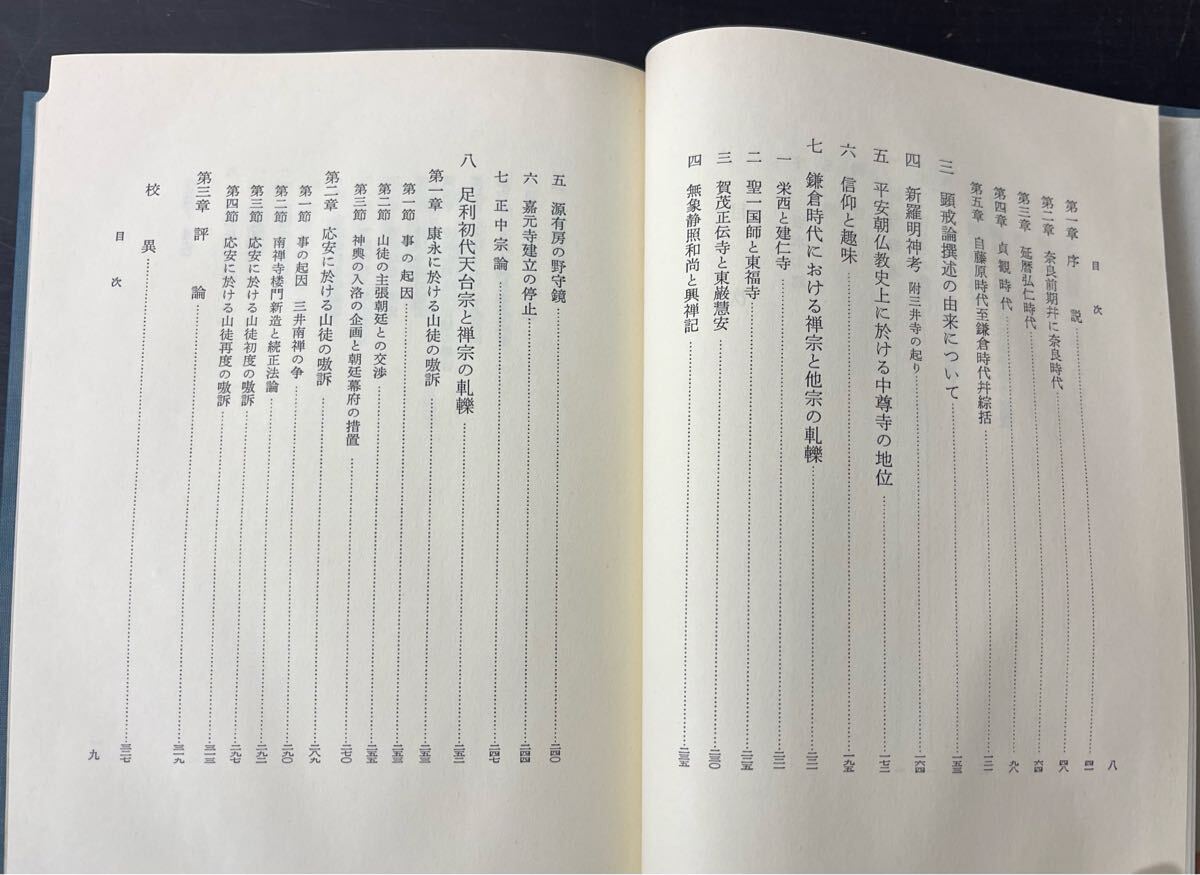 目次
第一章 序説……四一
第二章 奈良前期幷に奈良時代……四八
第三章 延暦弘仁時代……六四
第四章 貞観時代……九八
第五章 自藤原時代至鎌倉時代幷綜括……一三一
三 顕戒論撰述の由来について……一五三
四 新羅明神考 附三井寺の起り……一六四
五 平安朝仏教史上に於ける中尊寺の地位……一七二
六 信仰と趣味……一九五
七 鎌倉時代における禅宗と他宗の軋轢……二二一
一 栄西と建仁寺……二二一
二 聖一国師と東福寺……二二五
三 賀茂正伝寺と東巌慧安……二三〇
四 無象静照和尚と興禅記……二三五
八
五 源有房の野守鏡……二四〇
六 嘉元寺建立の停止……二四四
七 正中宗論……二四七
八 足利初代天台宗と禅宗の軋轢……二五二
第一章 康永に於ける山徒の嗷訴……二五三
第一節 事の起因……二五三
第二節 山徒の主張朝廷との交渉……二五五
第三節 神輿の入洛の企画と朝廷幕府の措置……二七〇
第二章 応安に於ける山徒の嗷訴……二八九
第一節 事の起因 三井南禅の争……二九〇
第二節 南禅寺楼門新造と続正法論……二九二
第三節 応安に於ける山徒初度の嗷訴……二九七
第四節 応安に於ける山徒再度の嗷訴……三一三
第三章 評論……三一九
校異……三二七
目次
九